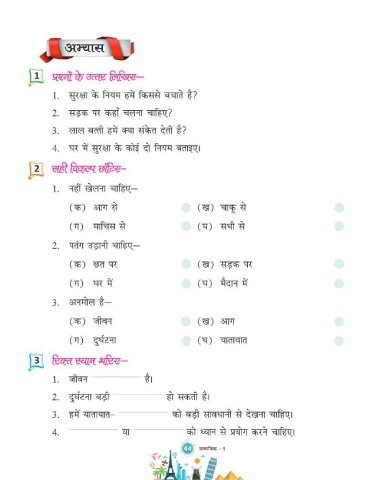 अभ्यास
1 प्रश्नों के उत्तर लिखिए—
1. सुरक्षा के नियम हमें किससे बचाते है?
2. सड़क पर कहाँ चलना चाहिए?
3. लाल बत्ती हमें क्या संकेत देती है?
4. घर में सुरक्षा के कोई दो नियम बताइए।
2 सही विकल्प छाँटिए—
1. नहीं खेलना चाहिए—
(क) आग से (ख) चाकू से
(ग) माचिस से (घ) सभी से
2. पतंग उड़ानी चाहिए—
(क) छत पर (ख) सड़क पर
(ग) घर में (घ) मैदान में
3. अनमोल है—
(क) जीवन (ख) आग
(ग) दुर्घटना (घ) यातायात
3 रिक्त स्थान भरिए—
1. जीवन ____ है।
2. दुर्घटना बड़ी ____ हो सकती है।
3. हमें यातायात- ____ को बड़ी सावधानी से देखना चाहिए।
4. ____ या ____ को ध्यान से प्रयोग करने चाहिए।
44 सामाजिक - 1